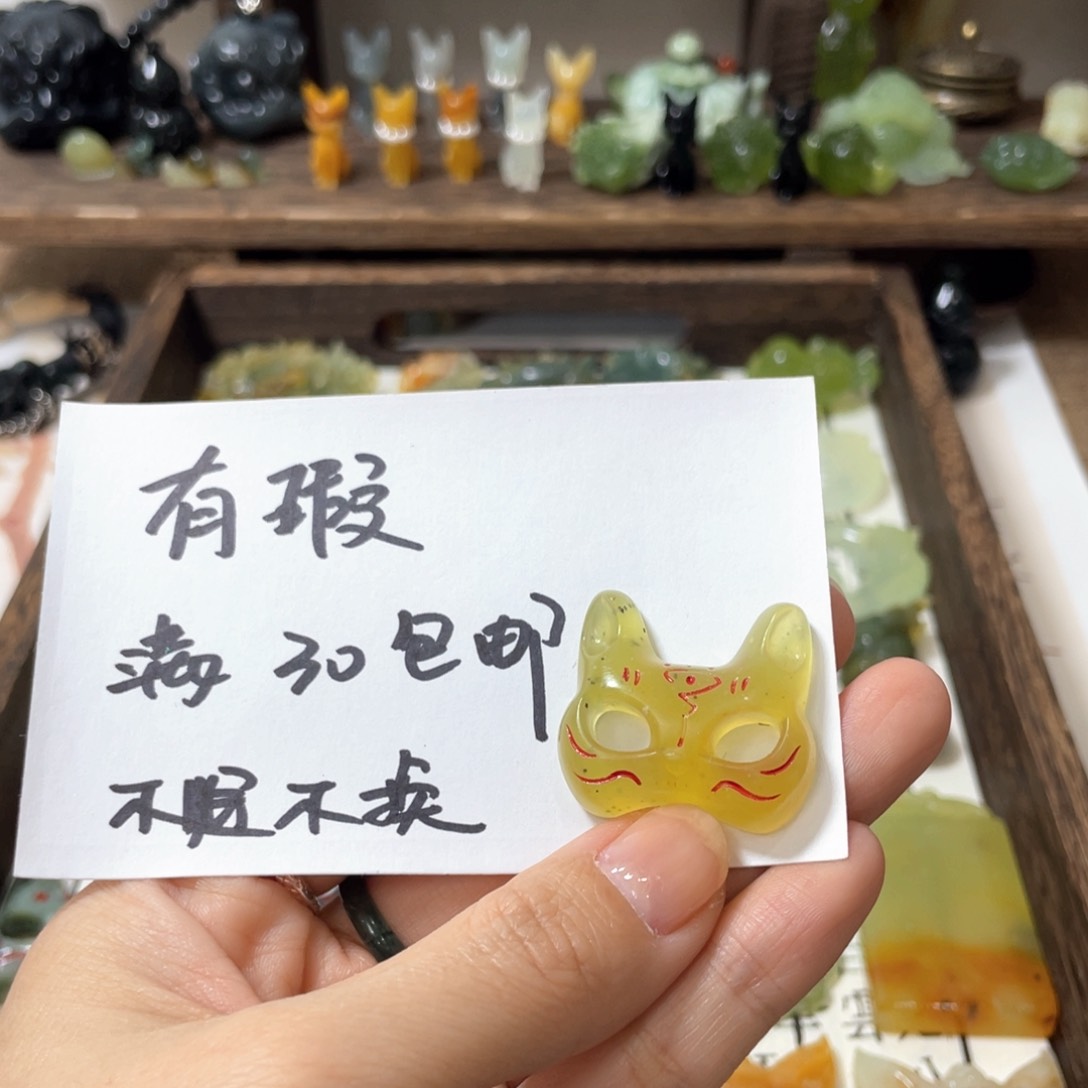 有瑕
满30包邮
不退不换
雲